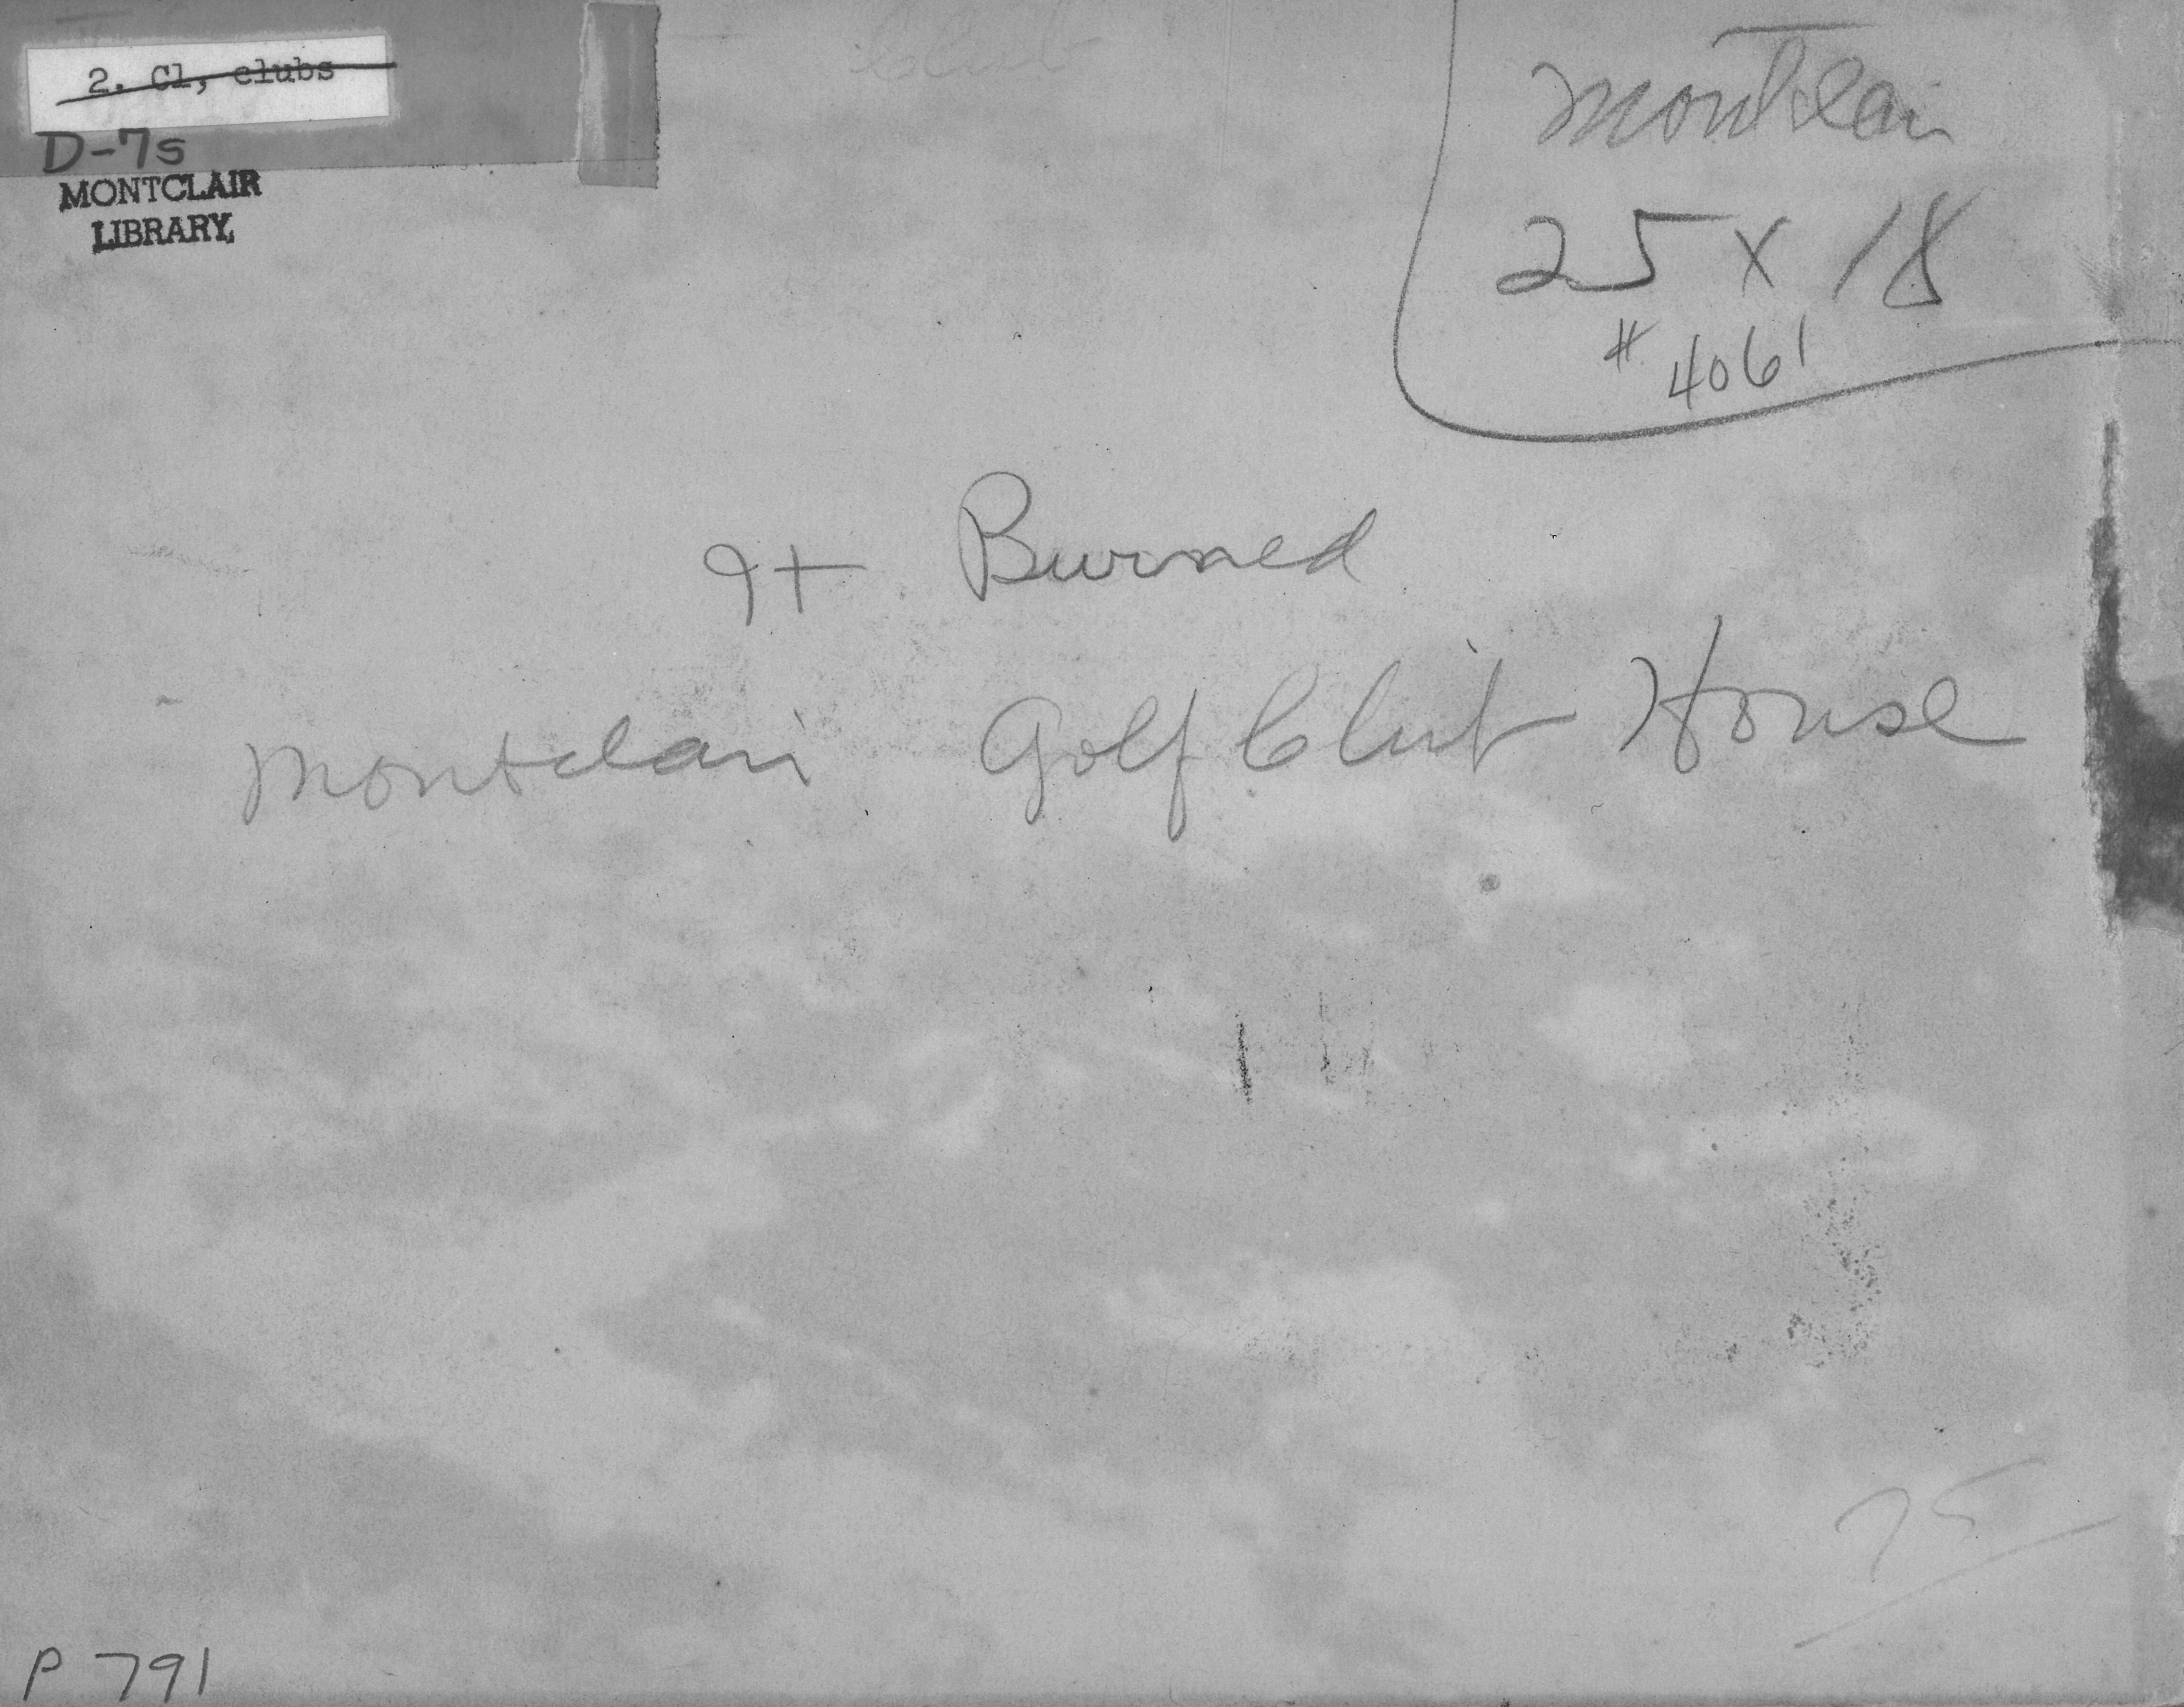 2. Cl, clubs
D-7s
MONTCLAIR
LIBRARY
Club
Montclair
25 x 18
# 4061
It Burned
Montclair Golf Club House
75
P 791